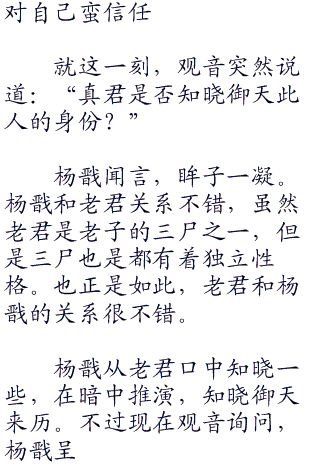 对自己蛮信任
就这一刻，观音突然说
道：“真君是否知晓御天此
人的身份？”
杨戬闻言，眸子一凝。
杨戬和老君关系不错，虽然
老君是老子的三尸之一，但
是三尸也是都有着独立性
格。也正是如此，老君和杨
戬的关系很不错。
杨戬从老君口中知晓一
些，在暗中推演，知晓御天
来历。不过现在观音询问，
杨戬呈